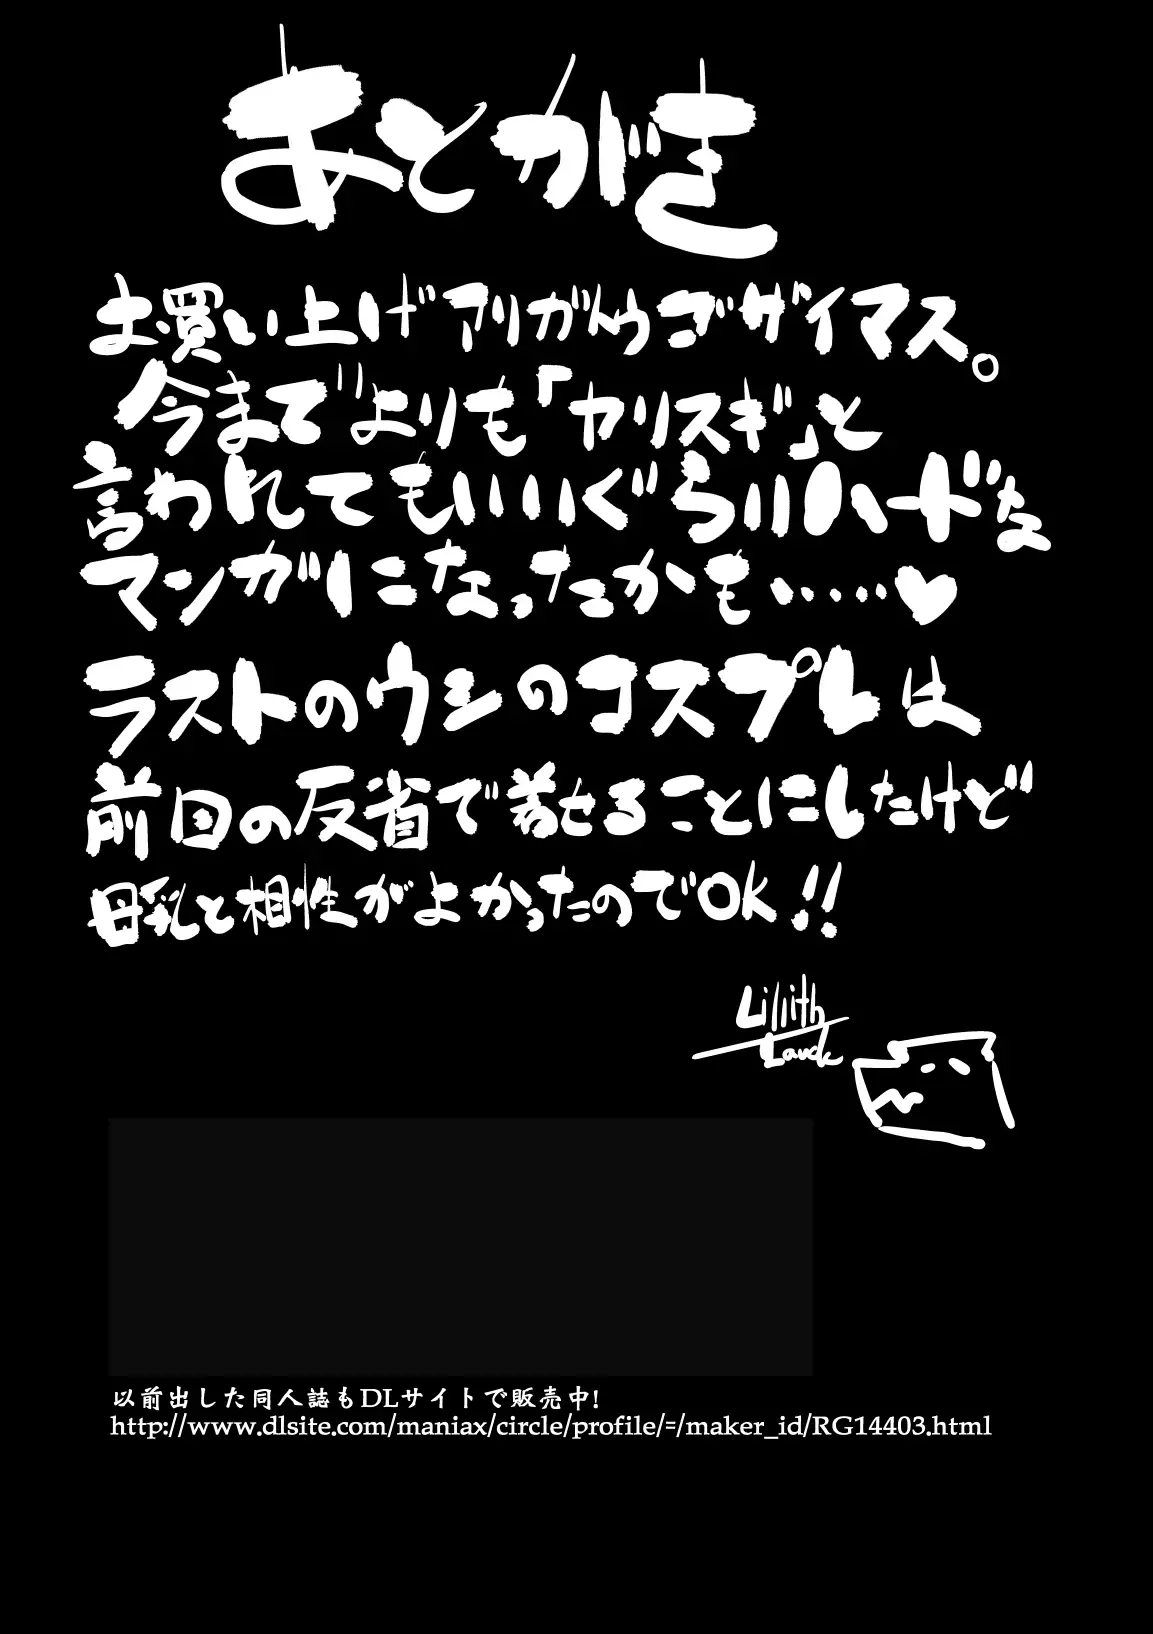 あとがき
お買い上げアリガトウゴザイマス。
今までよりも「ヤリスギ」と
言われてもいいぐらいハードな
マンガになったかも……♥
ラストのウシのコスプレは
前回の反省で着せることにしたけど
母乳と相性がよかったのでOK!!
Lillith
Lauda
以前出した同人誌もDLサイトで販売中!
http://www.dlsite.com/maniax/circle/profile/=/maker_id/RG14403.html